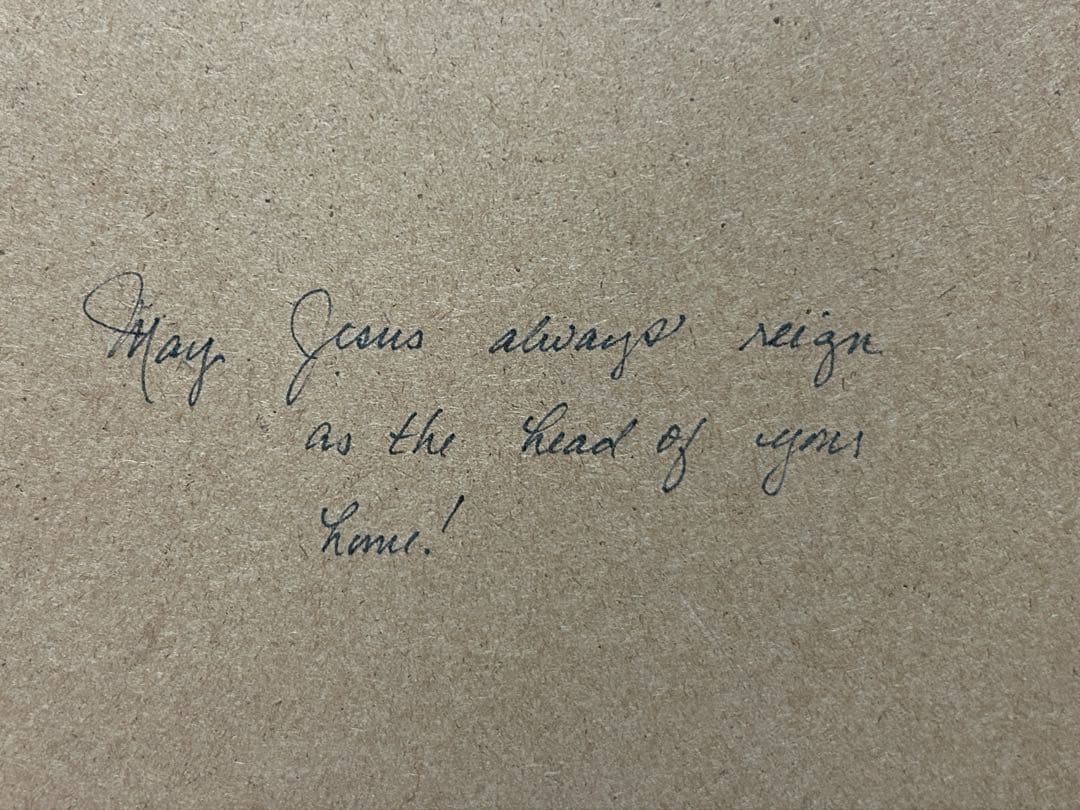 May Jesus always reign
as the head of your
home!